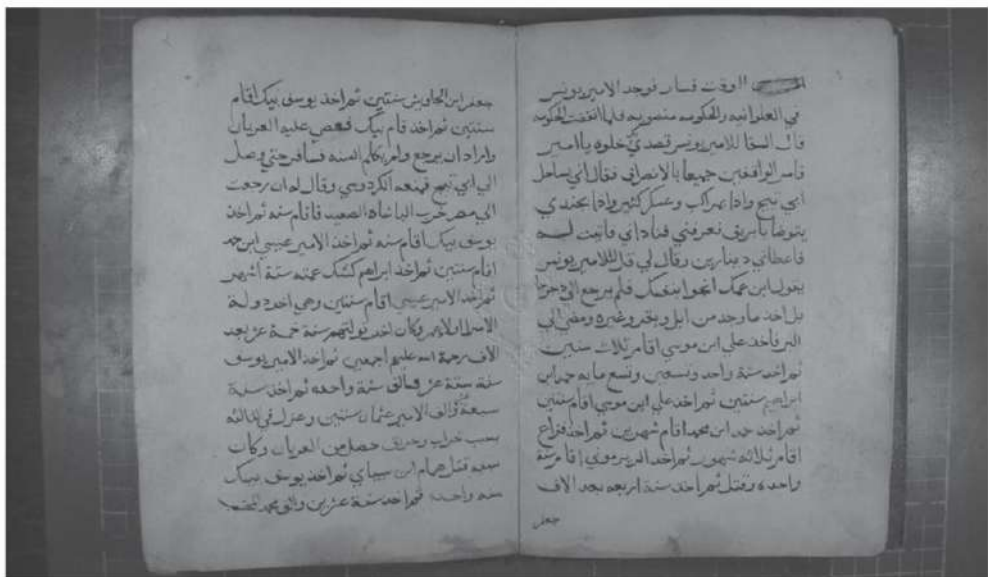 الوقت فسار فوجد الامير يونس
في العلوانيه والحكومه منصوبه فلما انفضت الحكومه
قال السقا للامير يونس قصدي خلوه يا امير
فامر الواقفين جميعا بالانصراف فقال اني بساحل
ابي تيج واذا بمراكب وعسكر كثير واذا بجندي
يتوضا بابريق فعرفني فناداني فاتيت لـه
فاعطاني دينارين وقال لي قل للامير يونس
يقول ابن عمك انجوا بنفسك فلم يرجع الي
بل اخذ ما وجد من ابل وبقر وغيره ومضى الى
البر فاخد علي ابن موسي اقام ثلاث سنين
ثم اخد سنة واحد وتسعين وتسع مايه حمد ابن
ابراهيم سنتين ثم اخد علي ابن موسي اقام سنتين
ثم اخد حمد ابن محمد اقام شهرين ثم اخد
اقام ثلاثه شهور ثم اخد موسي اقام سنة
واحده وقتل ثم اخد سنة اربعه بعد الاف
جعفر
جعفر ابن الجاويش سنتين ثم اخذ يوسف بيك اقام
سنتين ثم اخذ قام بيك فعصي عليه العربان
واراد ان يرجع ولم يكمل السنه فسافر حتي وصل
الي ابي تيج فمنعه الكردوسي وقال له ان رجعت
الي مصر خرب الباشاه الصعيد فاقام سنه ثم اخذ
يوسف بيك اقام سنه ثم اخذ الامير عيسي ابن حمد
اقام سنتين ثم اخذ ابراهيم كشك عمته ستة اشهر
ثم اخد الامير عيسي اقام سنتين وهي اخر دولـة
الامرا اولاد عمر وكان اخر تولتهم سنة خمسة عشر بعد
الاف رحمة الله عليهم اجمعين ثم اخذ الامير يوسف
سنة ستة عشر والف سنة واحده ثم اخذ سنـة
سبعة عشر والف الامير عثمان سنتين وعزل في الثالثه
بسبب خراب وحريق حصل من العربان وكان
سببه قتل همام ابن سيباي ثم اخذ يوسف بيـك
سنه واحده ثم اخد سنـة عشرين والف محمد